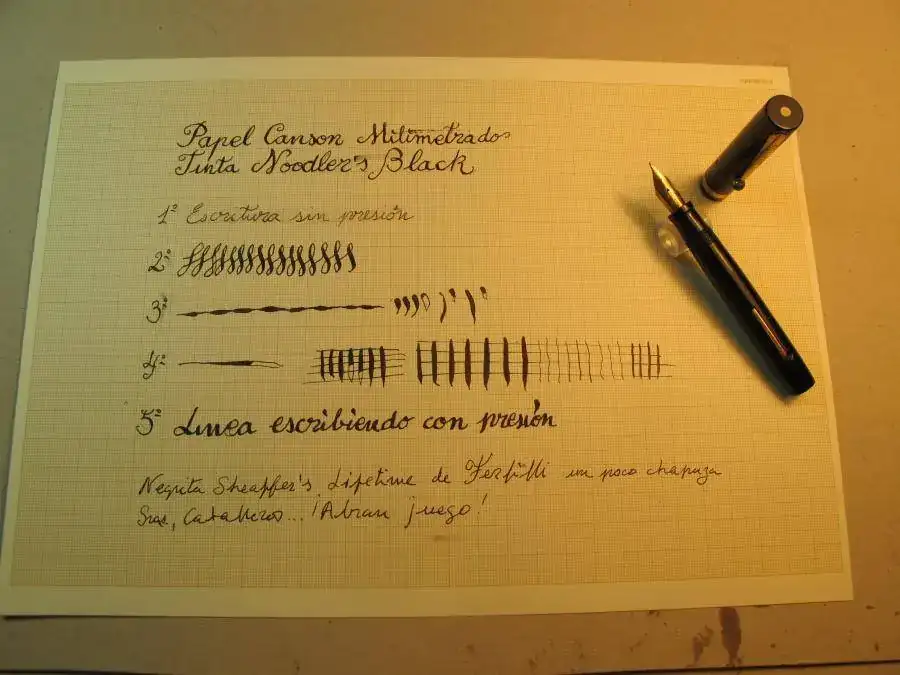 Papel Canson Milimetrado
Tinta Noodler's Black
1º Escritura sin presión
2º
3º
4º
5º Linea escribiendo con presión
Negrita Sheaffer's Lifetime de Ferfilli un poco chapuza
Sras, Caballeros... ¡Abran juego!